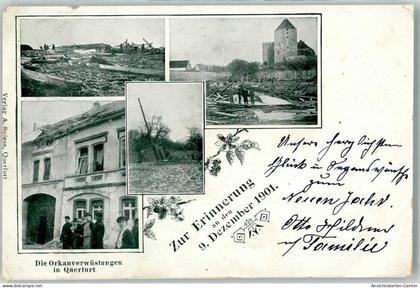 Verlag A. Querfurt
Die Orkanverwüstungen
in Querfurt
Zur Erinnerung
an den
9. Dezember 1901.
Unsere herzlichsten
Glück u Segenswünsche
zum
Neuen Jahr.
Otto
u Familie
www.ansichtskarten-center.de
Ansichtskarten-Center